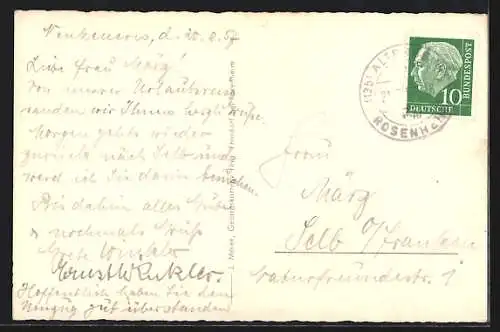 d. 20.8.57
Liebe Frau März!
Von unserer Urlaubsreise
senden wir Ihnen herzl. Grüße.
Morgen gehts wieder
zurück nach Selb und
werd ich Sie dann besuchen.
Bis dahin alles Gute
u. nochmals Grüße
Grete Winkler
Ernst Winkler.
Hoffentlich haben Sie den
Umzug gut überstanden
J. Meier,
Frau
März
Selb
Naturfreundestr. 1
(13b)
ROSENHEIM
10
DEUTSCHE
BUNDESPOST